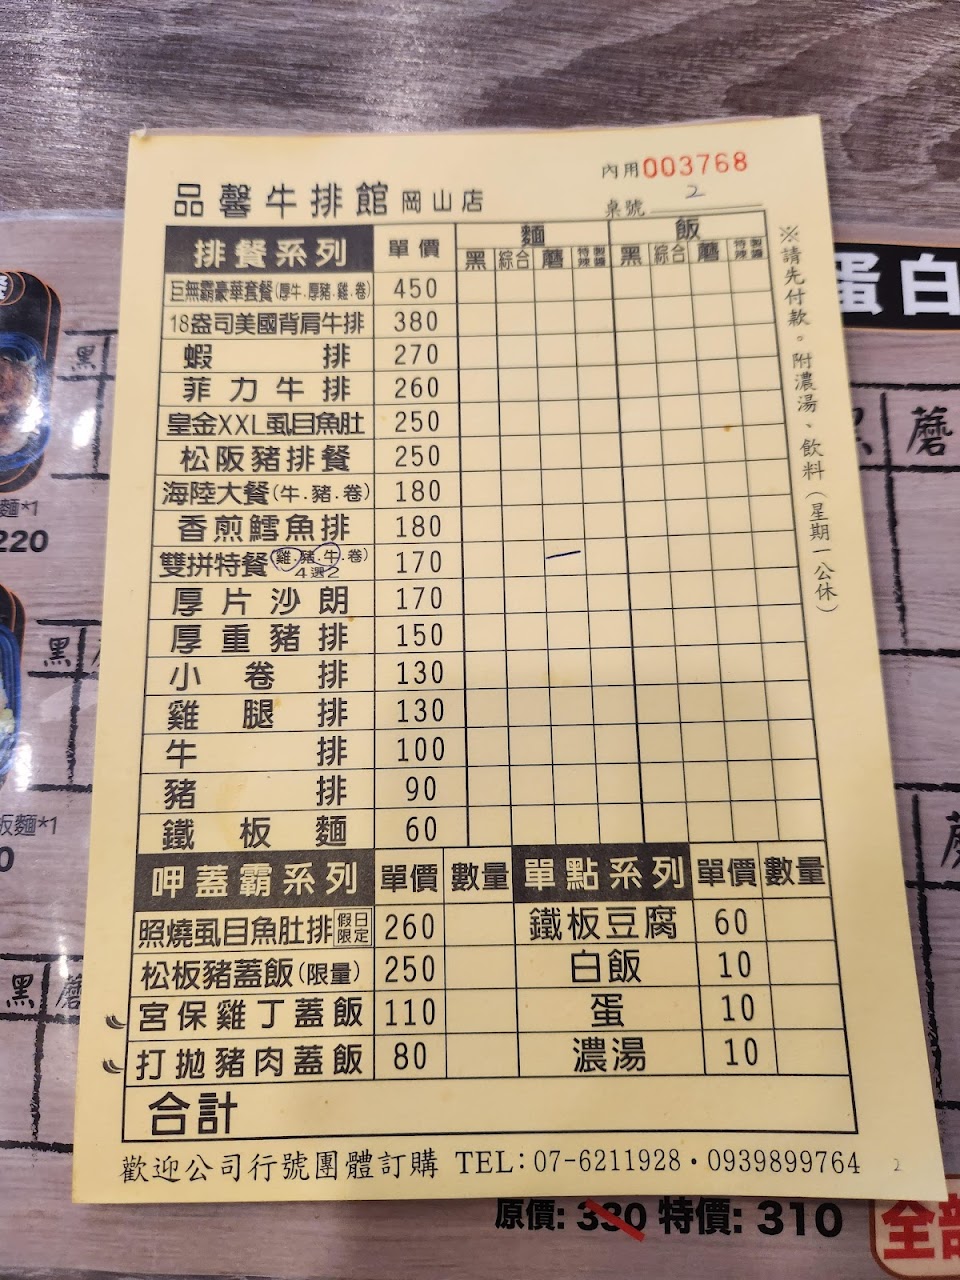 內用003768
品馨牛排館 岡山店
桌號 2
排餐系列 單價 麵 飯
黑 綜合 蘑 特製辣醬 黑 綜合 蘑 特製辣醬
巨無霸豪華套餐(厚牛.厚豬.雞.卷) 450
18盎司美國背肩牛排 380
蝦排 270
菲力牛排 260
皇金XXL虱目魚肚 250
松阪豬排餐 250
海陸大餐(牛.豬.卷) 180
香煎鱈魚排 180
雙拼特餐(雞.豬.牛.卷) 4選2 170
厚片沙朗 170
厚重豬排 150
小卷排 130
雞腿排 130
牛排 100
豬排 90
鐵板麵 60
呷蓋霸系列 單價 數量 單點系列 單價 數量
照燒虱目魚肚排 假日限定 260 鐵板豆腐 60
松板豬蓋飯(限量) 250 白飯 10
宮保雞丁蓋飯 110 蛋 10
打拋豬肉蓋飯 80 濃湯 10
合計
歡迎公司行號團體訂購 TEL:07-6211928・0939899764 2
※請先付款。附濃湯、飲料(星期一公休)
蛋白
黑 蘑
麵*1
220
黑
板麵*1
0
黑 蘑
原價: 330 特價: 310
全部